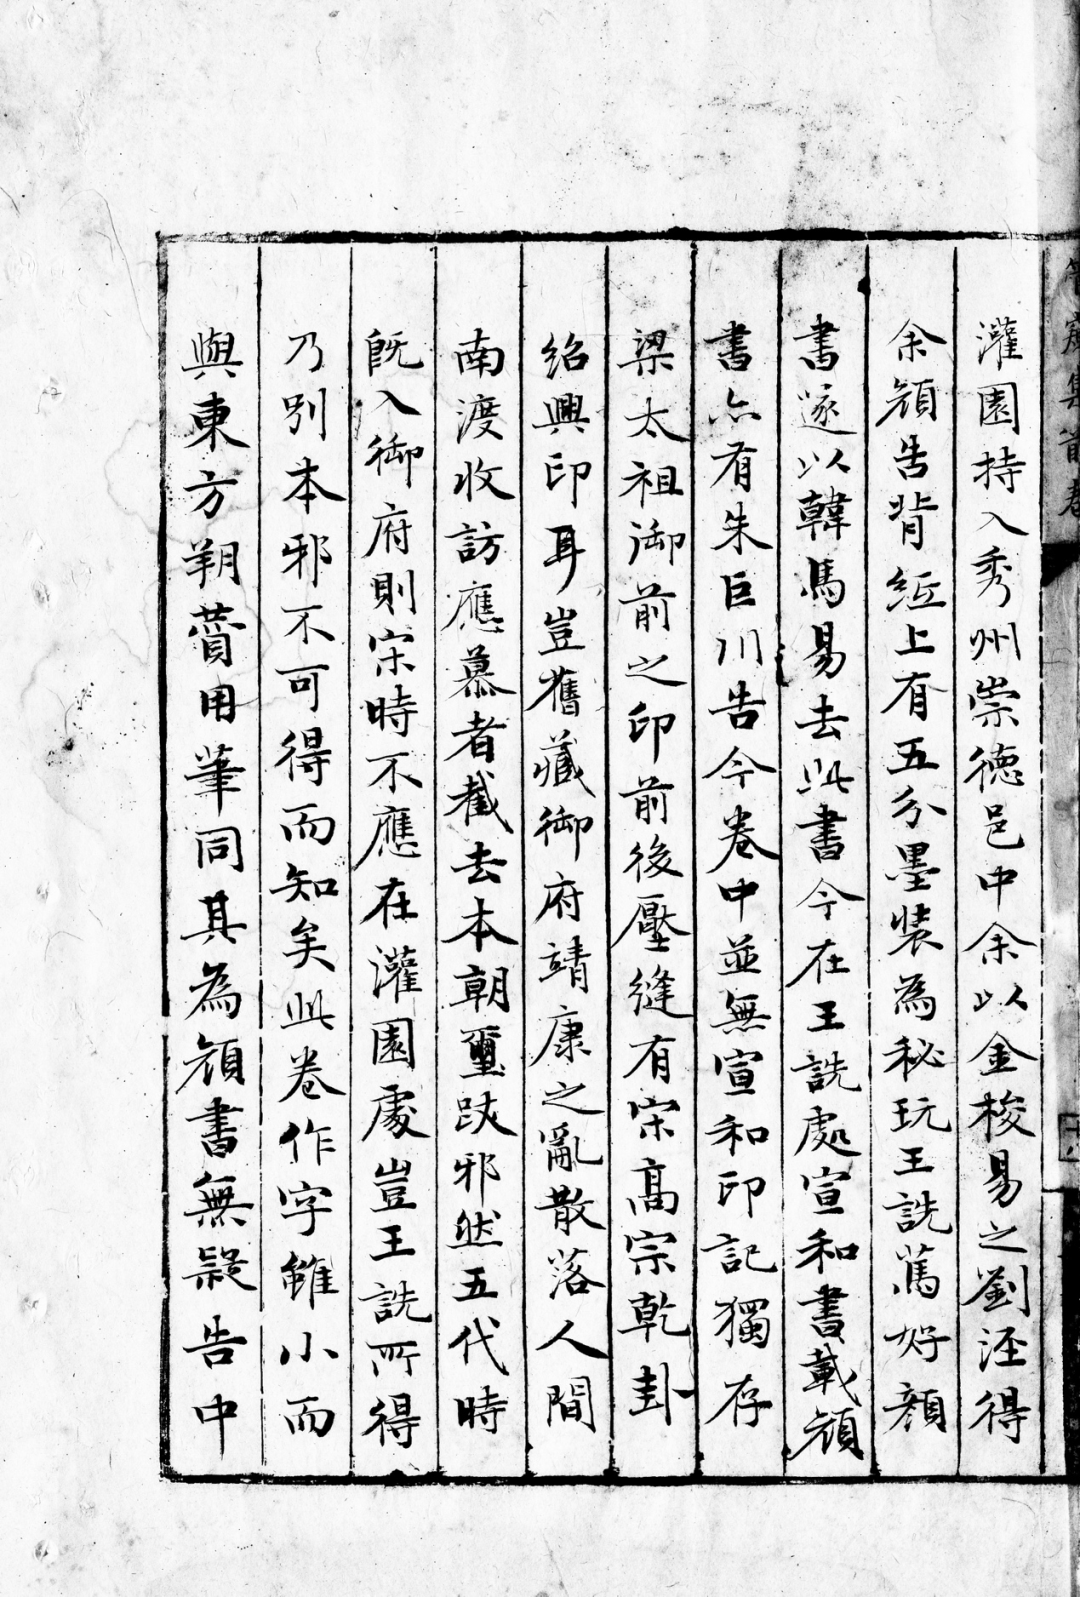 灌園持入秀州崇德邑中余以金梭易之劉涇得
余顔告背紙上有五分墨装為秘玩王詵篤好顔
書遂以韓馬易去此書今在王詵處宣和書載顔
書亦有朱巨川告今卷中並無宣和印記獨存
梁太祖御前之印前後壓縫有宋高宗乾卦
紹興印耳豈舊藏御府靖康之亂散落人間
南渡收訪應慕者截去本朝璽跋邪然五代時
旣入御府則宋時不應在灌園處豈王詵所得
乃別本邪不可得而知矣此卷作字雖小而
與東方朔賛用筆同其為顔書無疑告中